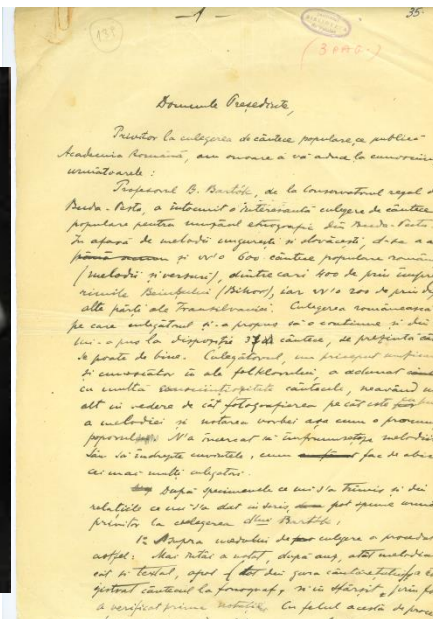 — 1 —
35.
133
(3 pag.)
Domnule Președinte,
Privitor la culegerea de cântece populare, ce publică
Academia Română, am onoare a vă aduce la cunoștin
urmatoarele:
Profesorul B. Bartók, de la Conservatorul regal d
Buda-Pesta, a întocmit o interesantă culegere de cântece
populare pentru muzeul etnografic din Buda-Pesta.
În afară de melodii ungurești și slovăcești, d-sa a a
și vr'o 600 cântece populare român
(melodii și versuri), dintre cari 400 de prin
Beiușului (Bihor), iar vr'o 200 de prin
alte părți ale Transilvaniei. Culegerea românească
pe care culegătorul și-a propus să o continue și din
mi-a pus la dispoziție cântece, de prezinta
de poate de bine. Culegătorul, un priceput
și cunoscător în ale folklorului, a adunat
cu multă conscienciozitate cântecele, neavând
alt în vedere de cât fotografierea pe cât este
a melodiei și notarea vorbei așa cum o
poporul. N'a încercat să înfrumsețeze melodii
sau să îndrepte cuvintele, cum fac de obice
cei mai mulți culegători.
După specimenele ce mi s'a trimis și din
relațiile ce mi s'a dat în scris, pot spune
privitor la culegerea dlui Bartók:
1º Asupra modului de culegere a procedat
astfel: Mai întâi a notat, după auz, atât melodia
cât și textul, apoi
cântecul la fonograf, și în sfârșit, prin
a verificat prima notație. Cu felul acesta de proce